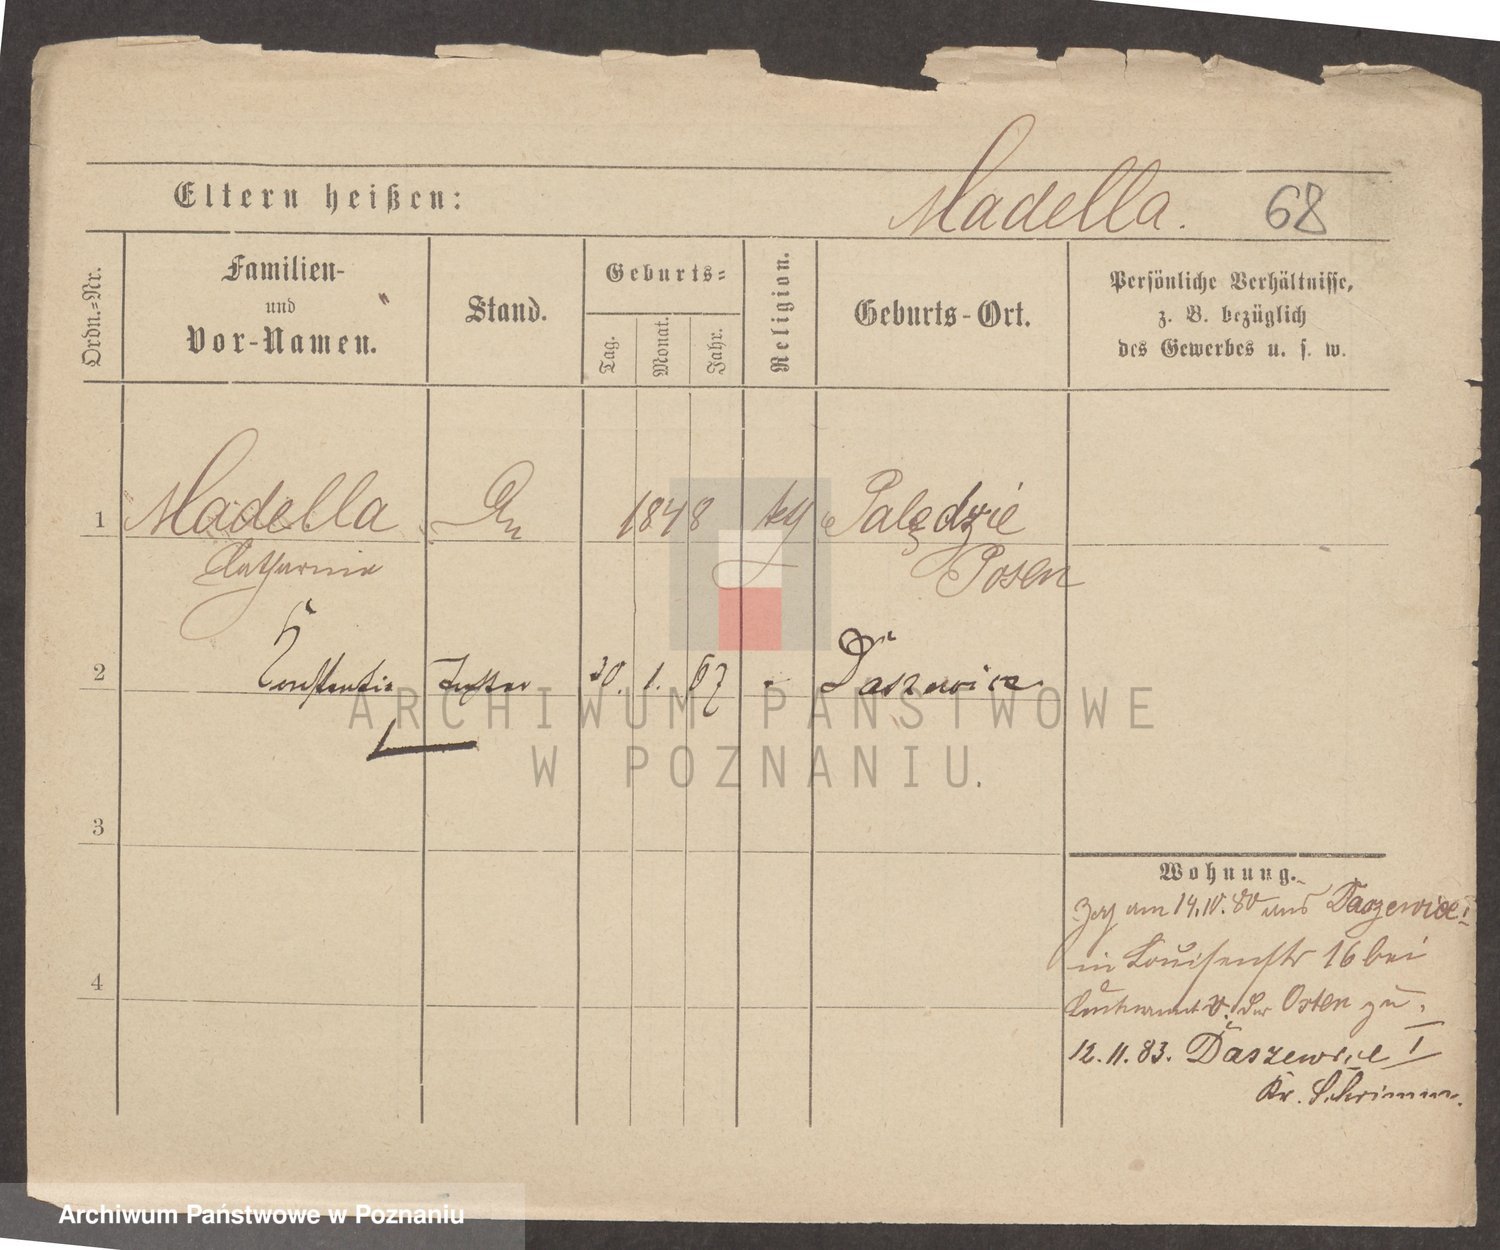 Eltern heißen:
Madella.
68
Ordn.-Nr.
Familien-
und
Vor-Namen.
Stand.
Geburts-
Tag.
Monat.
Jahr.
Religion.
Geburts-Ort.
Persönliche Verhältnisse,
z. B. bezüglich
des Gewerbes u. s. w.
1
Madella
1848
Palędzie
Catharina
Posen
2
Constantia
Tochter
30. 1. 67
-
Daszewice
ARCHIWUM PAŃSTWOWE
W POZNANIU.
3
4
Wohnung.
Zog am 14.10.80 aus Daszewice
in Louisenstr 16 bei
v. der Osten zu.
12.11.83. Daszewice I
Kr. Schrimm.
Archiwum Państwowe w Poznaniu